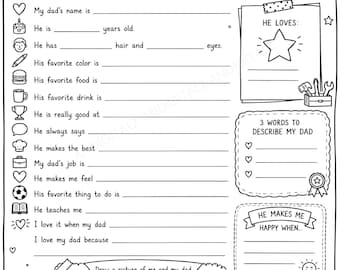 My dad's name is
He is ______ years old.
He has ______ hair and ______ eyes.
His favorite color is
His favorite food is
His favorite drink is
He is really good at
He always says
He makes the best
My dad's job is
He makes me feel
His favorite thing to do is
He teaches me
I love it when my dad
I love my dad because
Draw a picture of me and my dad
HE LOVES:
3 WORDS TO
DESCRIBE MY DAD
HE MAKES ME
HAPPY WHEN...